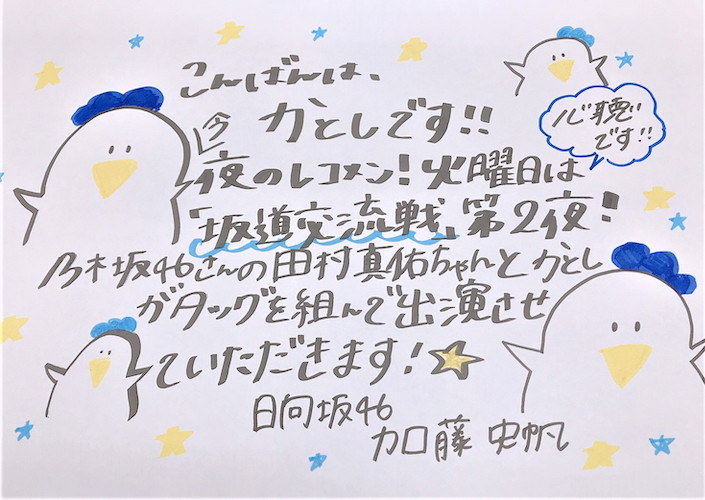 こんばんは、
かとしです!!
今夜のレコメン!火曜日は
「坂道交流戦」第2夜!
乃木坂46さんの田村真佑ちゃんとかとし
がタッグを組んで出演させ
ていただきます!
日向坂46
加藤 史帆
必聴
です!!